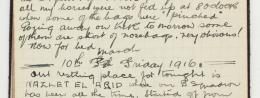 all my horses were not fed up at 8.0 oclock
when some of the bags were "pinched"
Going away on to morrow some
of them are short of nosebags. Very obvious!
Now for bed
March
10th Friday 1916.
Our resting place for tonight is
NAZLET EL ABID where our Squadron
has been all the time. Started off from